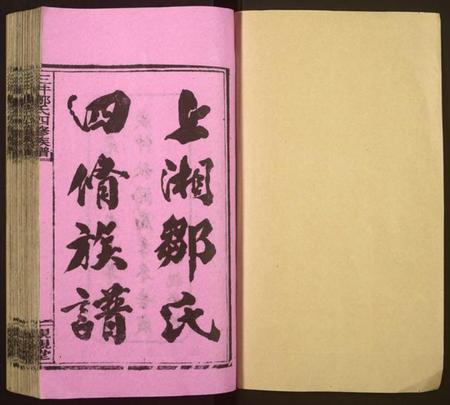 上湘鄒氏
四脩族譜
三井鄒氏四修族譜